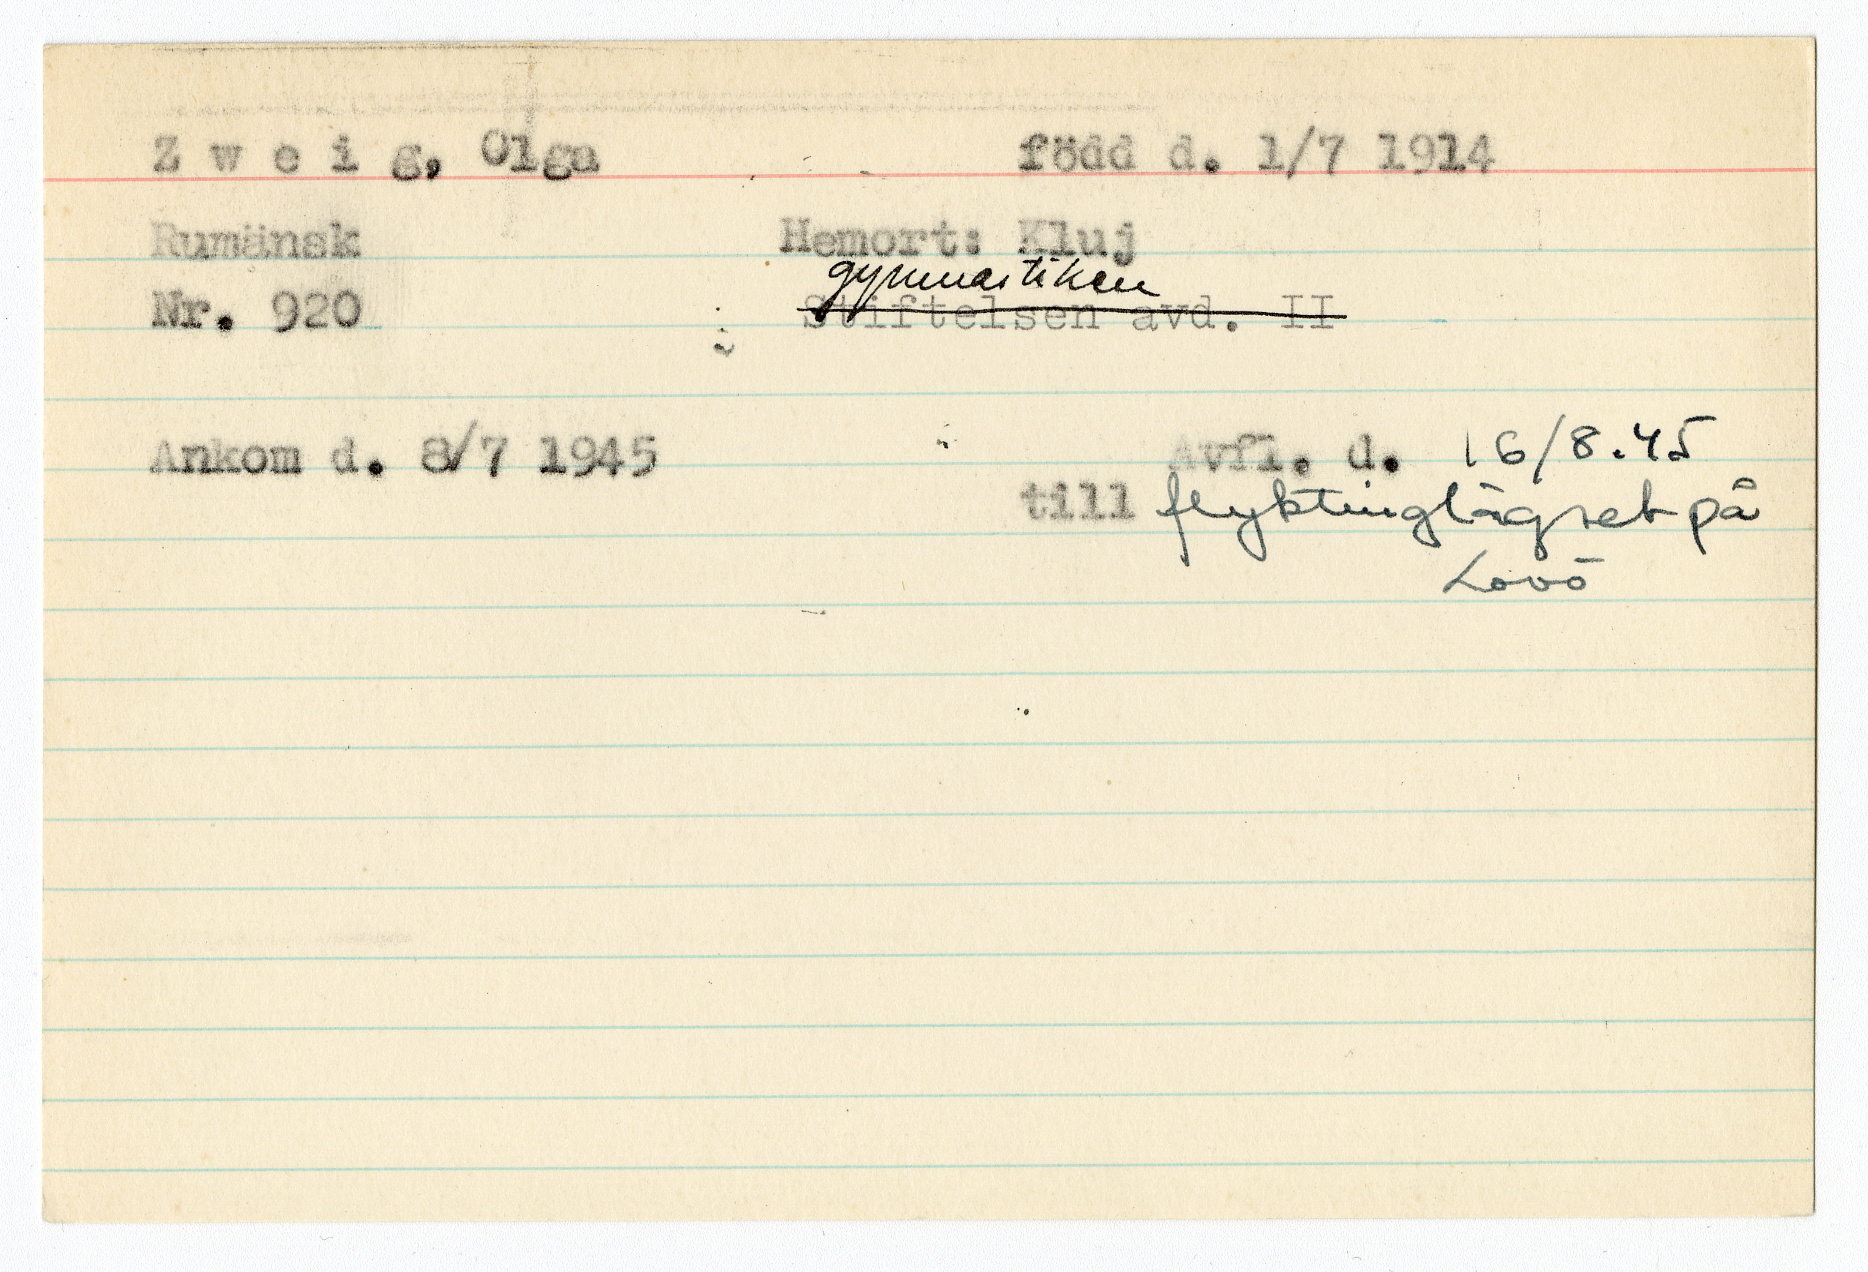 Z w e i g, Olga född d. 1/7 1914
Rumänsk Hemort: Kluj
gymnastiken
Nr. 920 Stiftelsen avd. II
Ankom d. 8/7 1945 Avfl. d. 16/8.45
till flyktinglägret på
Lovö